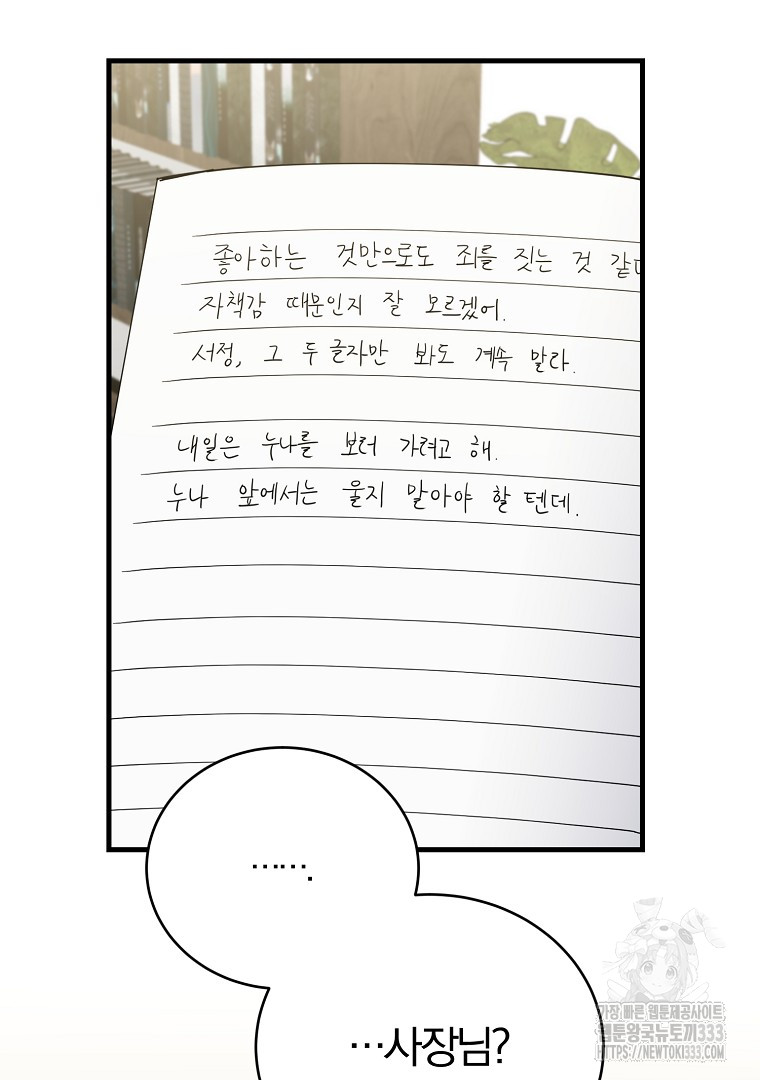 좋아하는 것만으로도 죄를 짓는 것 같
자책감 때문인지 잘 모르겠어.
서정, 그 두 글자만 봐도 계속 말라.
내일은 누나를 보러 가려고 해.
누나 앞에서는 울지 말아야 할 텐데.
…….
…사장님?
가장 빠른 웹툰제공사이트
웹툰왕국뉴토끼333
HTTPS://NEWTOKI333.COM